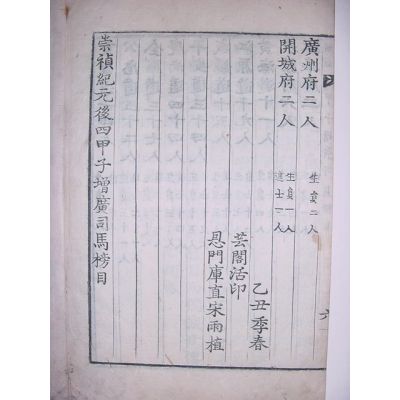 廣州府二人
生員二人
開城府二人
生員一人
進士一人
乙丑季春
芸閣活印
惕門庫直宋雨植
崇禎紀元後四甲子增廣司馬榜目